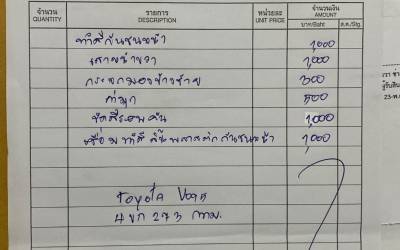 จำนวน รายการ หน่วยละ จำนวนเงิน
QUANTITY DESCRIPTION UNIT PRICE AMOUNT
บาท/Baht ส.ต./Stg.
ทำสีกันชนหน้า 1,000
1,000
กระจกมองข้างซ้าย 300
ค่า 500
ขัดสีรอบคัน 1,000
เชื่อม ทำสี ลิ้นพลาสติกกันชนหน้า 1,000
toyota
4 ขก 273 กทม.